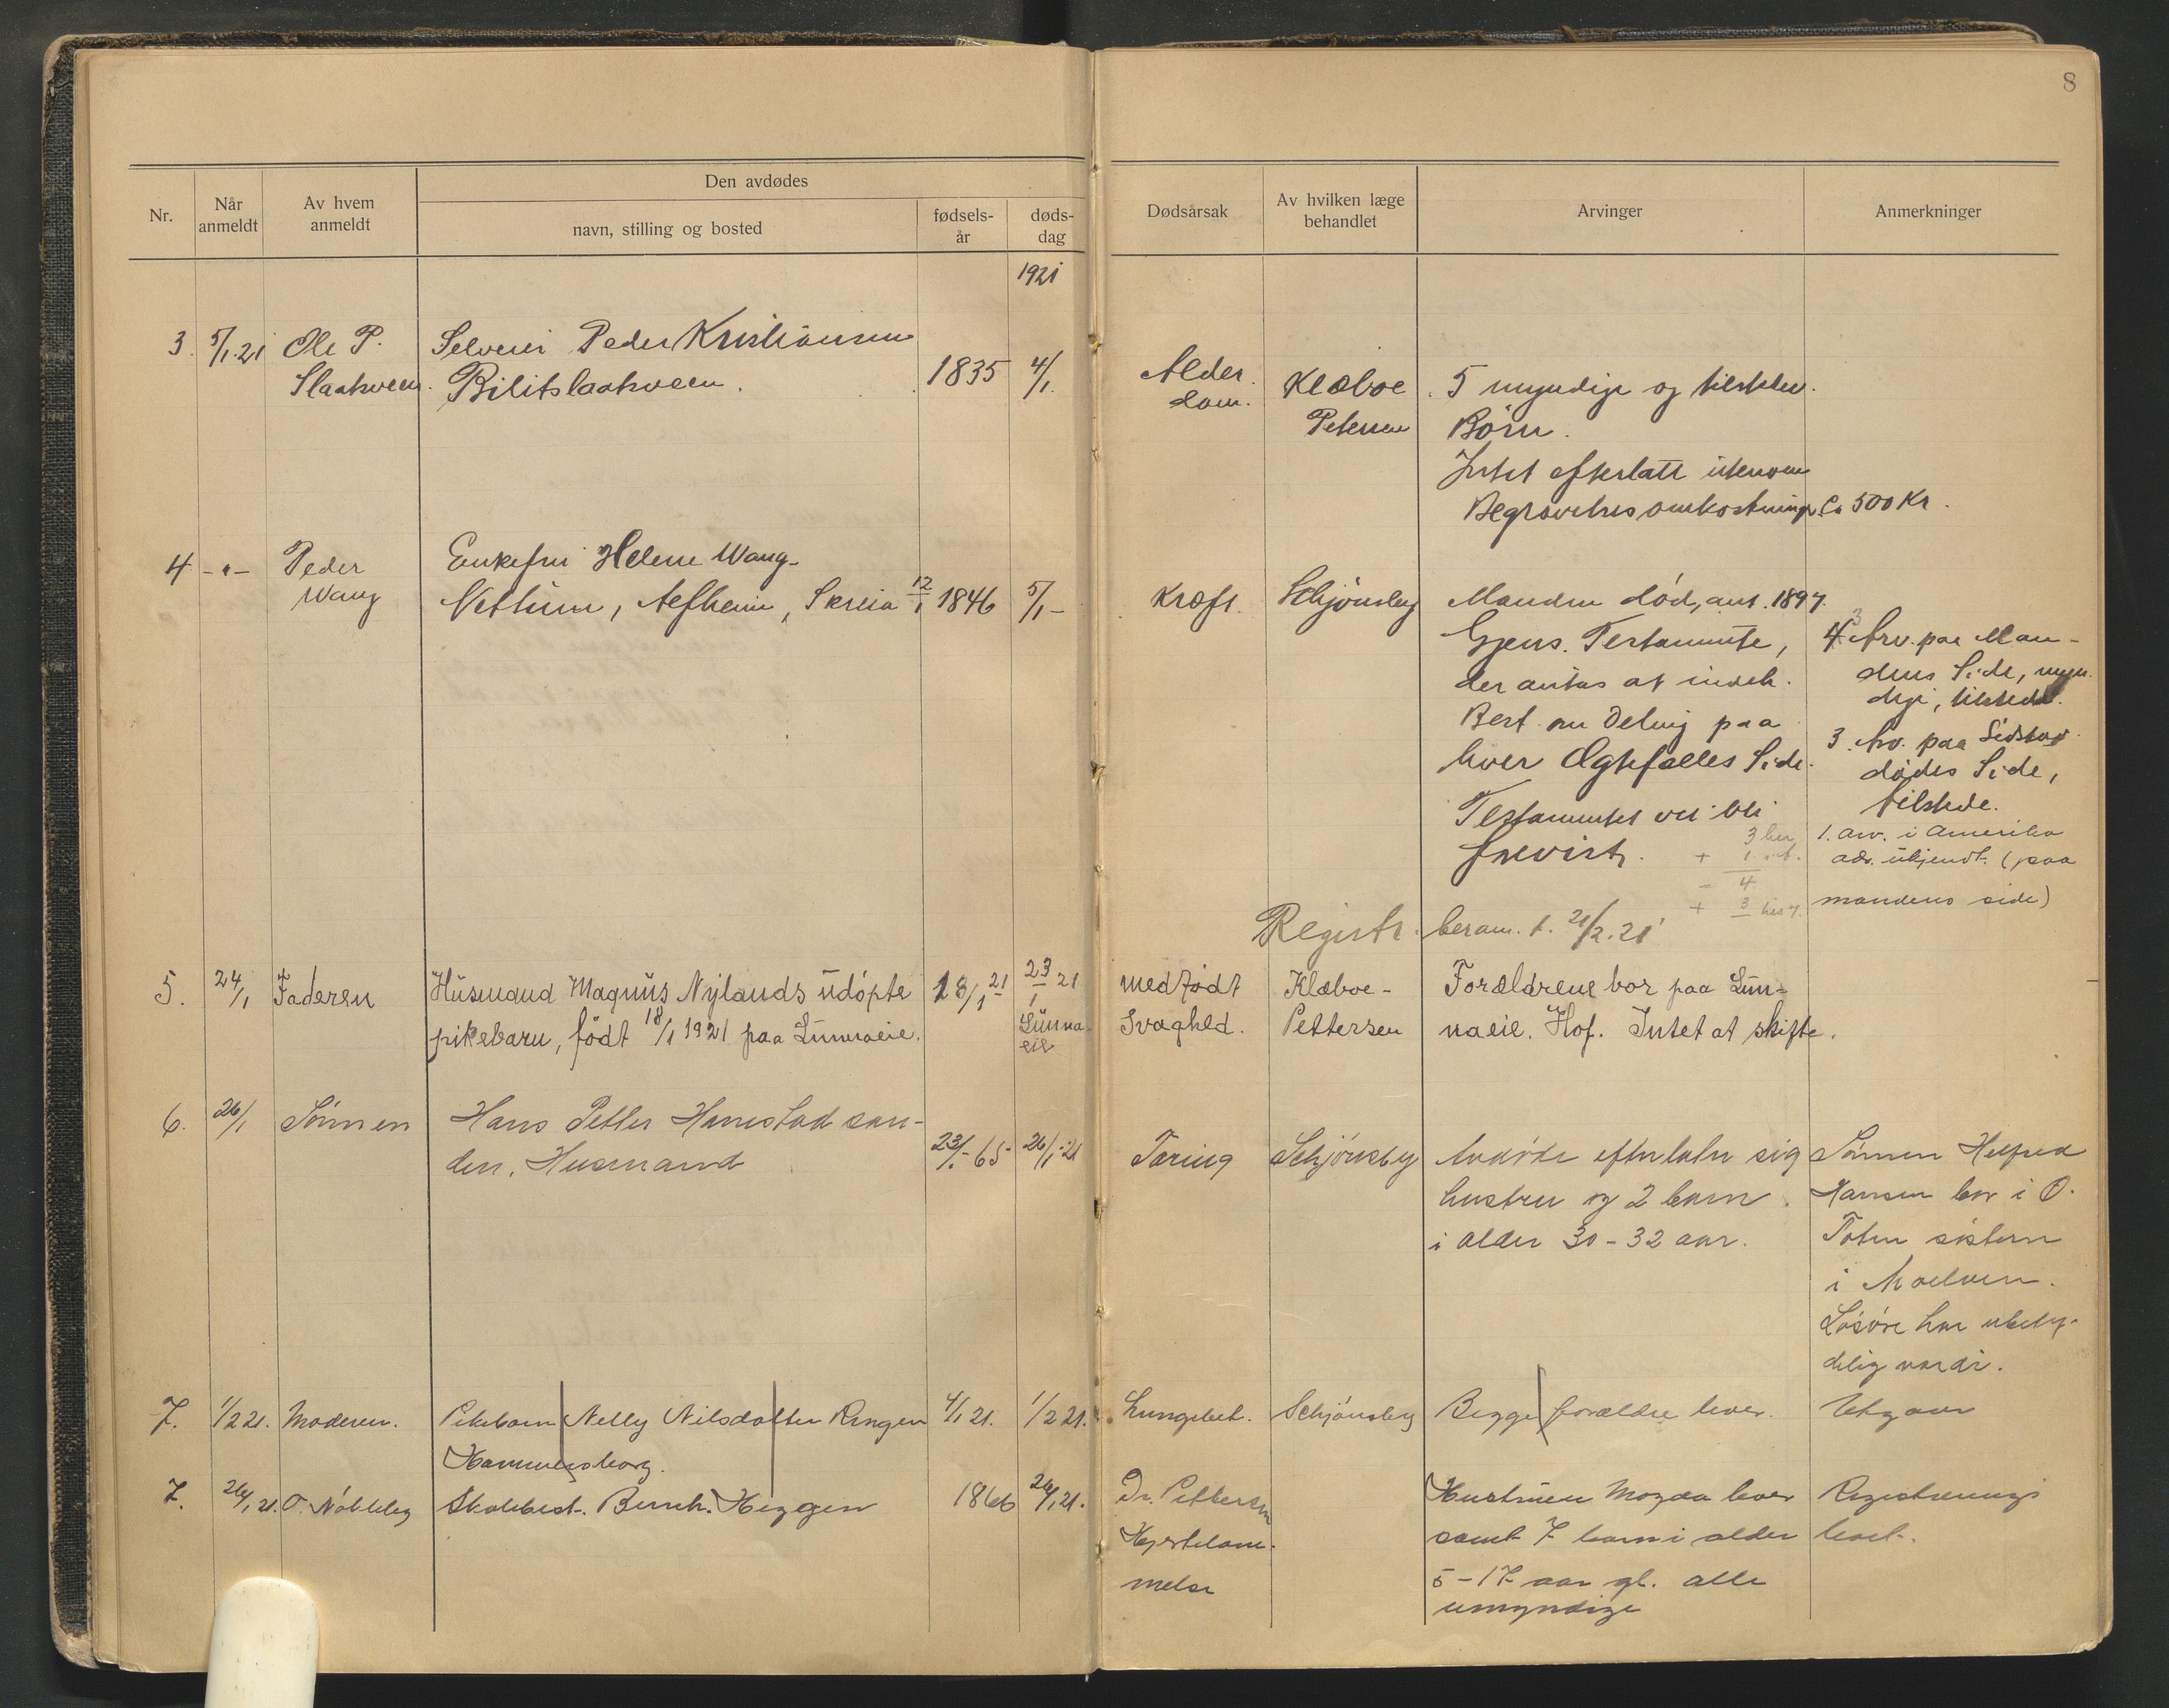 8
Nr.
Når anmeldt
Av hvem anmeldt
Den avdødes
navn, stilling og bosted
fødsels-år
døds-dag
Dødsårsak
Av hvilken læge behandlet
Arvinger
Anmerkninger
1921
3. 5/1.21 Ole P. Selveier Peder Kristiansen
Slaatsveen. Bilitslaatsveen. 1835 4/1.
Alder
dom.
Klæboe
Petersen
5 myndige og tilstedev.
Börn.
Intet efterlatt utenom
Begravelsesomkostninger Ca 500 Kr.
4 -"- Peder Enkefru Helene Wang
Wang Nettum, Alfheim, Skreia 12/1 1846 5/1 -
Kræft. Schjönsby Manden död, ant. 1897.
Gjens. Testamente,
der antas at indeh.
Best. om Deling paa
hver Ægtefælles Side.
Testamentet vil bli
fremvist.
3 her
+ 1
- 4
+ 3
4 3 Arv. paa Man-
dens Side, myn-
dige, tilstede.
3. Arv. paa Sidstav
dødes Side,
tilstede.
1. arv. i Amerika
adr. ukjendt. (paa
mandens side)
Registr. beram. t. 21/2.21
5. 24/1 Faderen Husmand Magnus Nylands udöpte 18/1 21 23/1 21
pikebarn, födt 18/1 1921 paa Lunnaeie. Lunna-
eie
medfödt Klæboe- Forældrene bor paa Lun-
Svaghed. Pettersen naeie. Hof. Intet at skifte.
6. 26/1 Sönnen Hans Petter Hanestad san-
den. Husmand 23/1-65 26/1-21
Tæring Schjönsby Avdöde efterlater sig
hustru og 2 barn
i alder 30-32 aar.
Sönnen Helfred
Hansen bor i Ö.
Toten sösteren
i Moelven.
Lösöre har ubety-
delig værdi.
7. 1/2 21. Moderen. Pikebarn Nelly Nilsdatter Ringen 4/1 21. 1/2 21.
Hammersborg.
Lungebet. Schjönsby Begge forældre lever. Utgaar
7. 26/1 21. O. Nökleby Skolebest. Bernh. Heggen 1866 26/1 21.
Dr. Pettersen
Hjertelam-
melse
Hustruen Magda lever
samt 7 barn i alder
5-17 aar gl. alle
umyndige
Registrerings